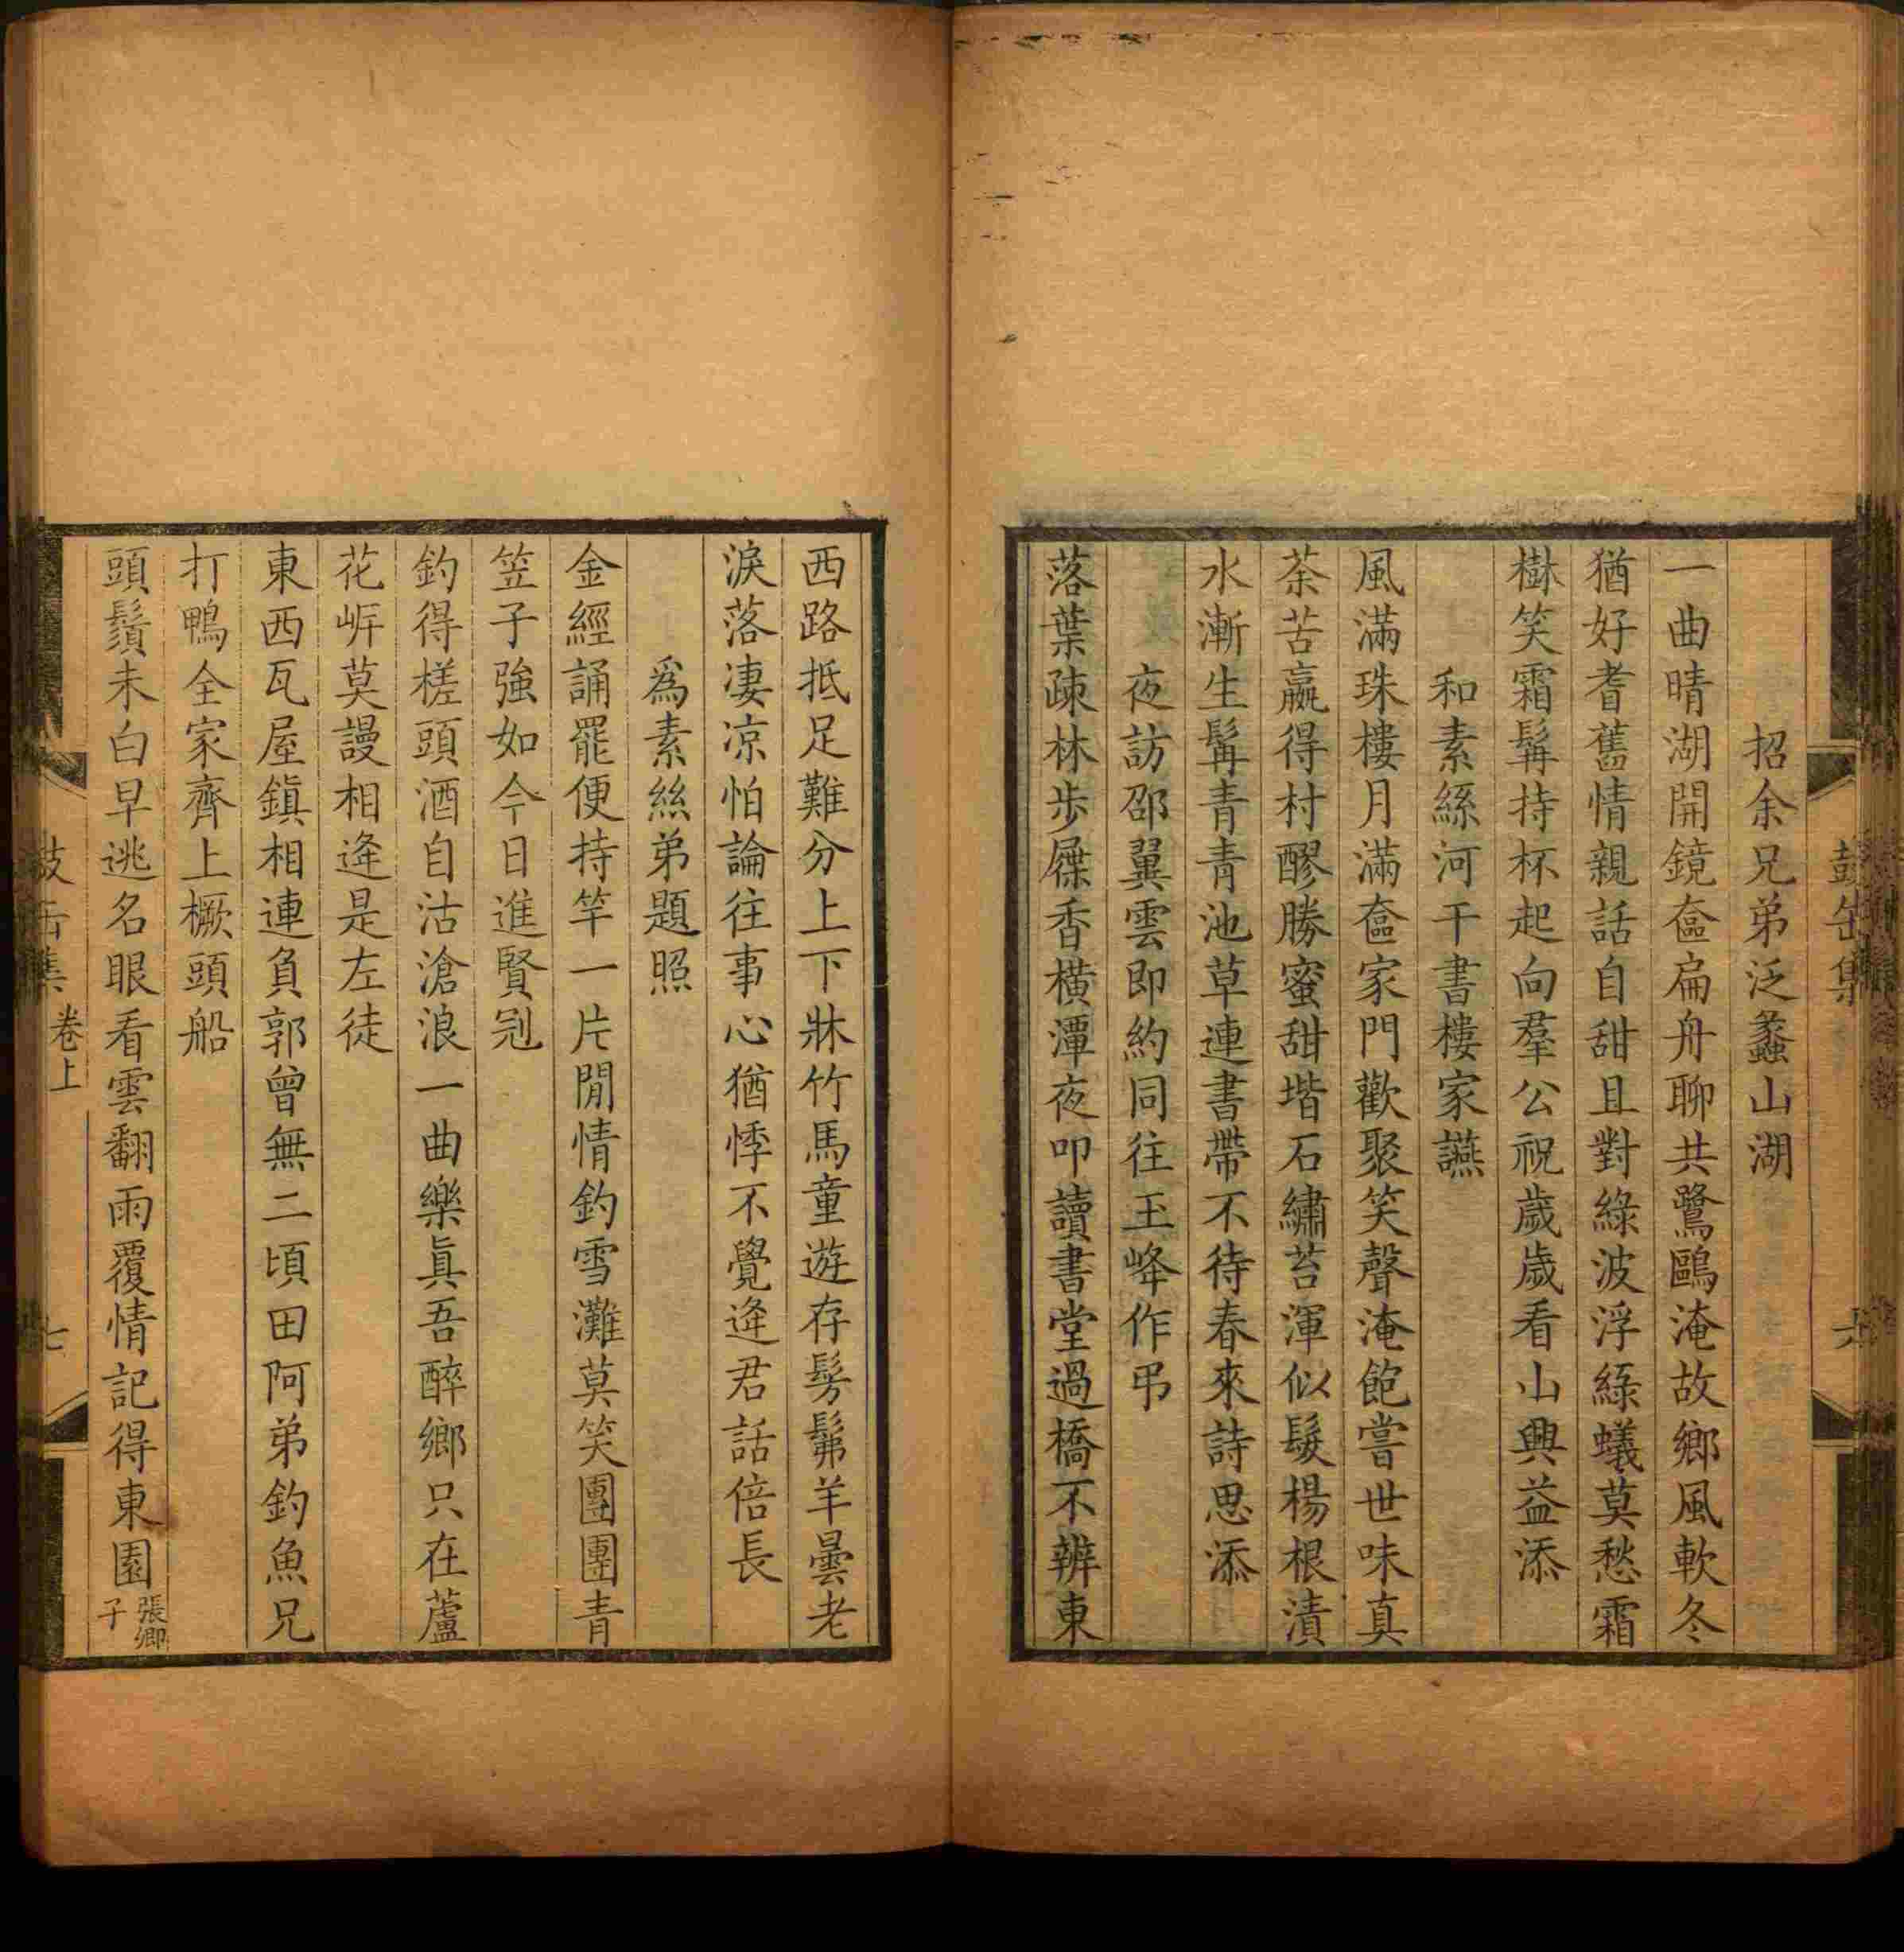 招余兄弟泛蠡山湖
一曲晴湖開鏡奩扁舟聊共鷺鷗淹故鄉風軟冬
猶好耆舊情親話自甜且對綠波浮綠蟻莫愁霜
樹笑霜髯持杯起向羣公祝歲歲看山興益添
和素絲河干書樓家讌
風滿珠樓月滿奩家門歡聚笑聲淹飽嘗世味真
荼苦贏得村醪勝蜜甜堦石繡苔渾似髮楊根漬
水漸生髯青青池草連書帶不待春來詩思添
夜訪邵翼雲即約同往玉峰作弔
落葉疎林步屧香橫潭夜叩讀書堂過橋不辨東
西路抵足難分上下牀竹馬童遊存髣髴羊曇老
淚落凄凉怕論往事心猶悸不覺逢君話倍長
爲素絲弟題照
金經誦罷便持竿一片閒情釣雪灘莫笑團團青
笠子強如今日進賢冠
釣得槎頭酒自沽滄浪一曲樂眞吾醉鄉只在蘆
花㟁莫謾相逢是左徒
東西瓦屋鎮相連負郭曾無二頃田阿弟釣魚兄
打鴨全家齊上橛頭船
頭鬚未白早逃名眼看雲翻雨覆情記得東園張卿子
卷上
七